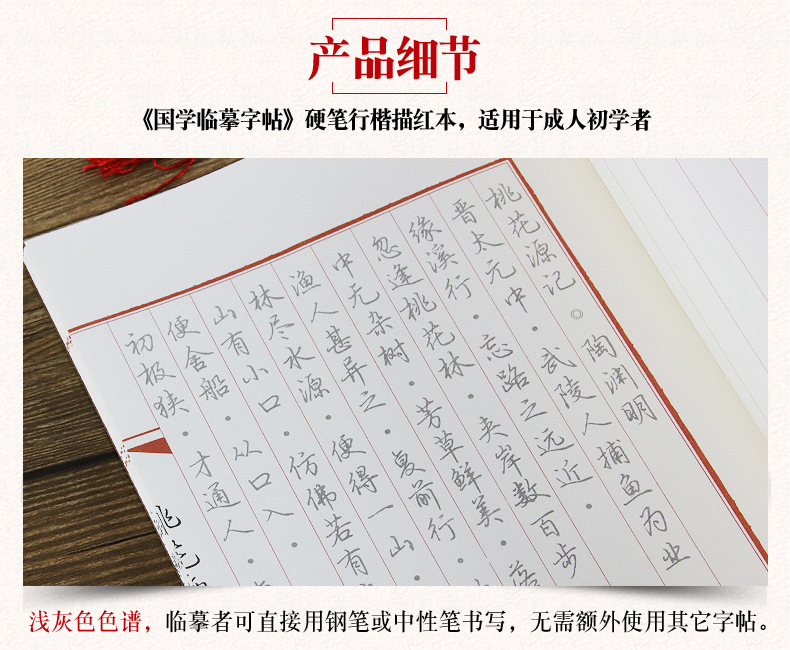 产品细节
《国学临摹字帖》硬笔行楷描红本，适用于成人初学者
桃花源记◎陶渊明
晋太元中·武陵人捕鱼为业
缘溪行·忘路之远近·
忽逢桃花林·夹岸数百步
中无杂树·芳草鲜美·落
渔人甚异之·复前行·
林尽水源·便得一山
山有小口·仿佛若有
便舍船·从口入·
初极狭·才通人·
桃花
浅灰色色谱，临摹者可直接用钢笔或中性笔书写，无需额外使用其它字帖。